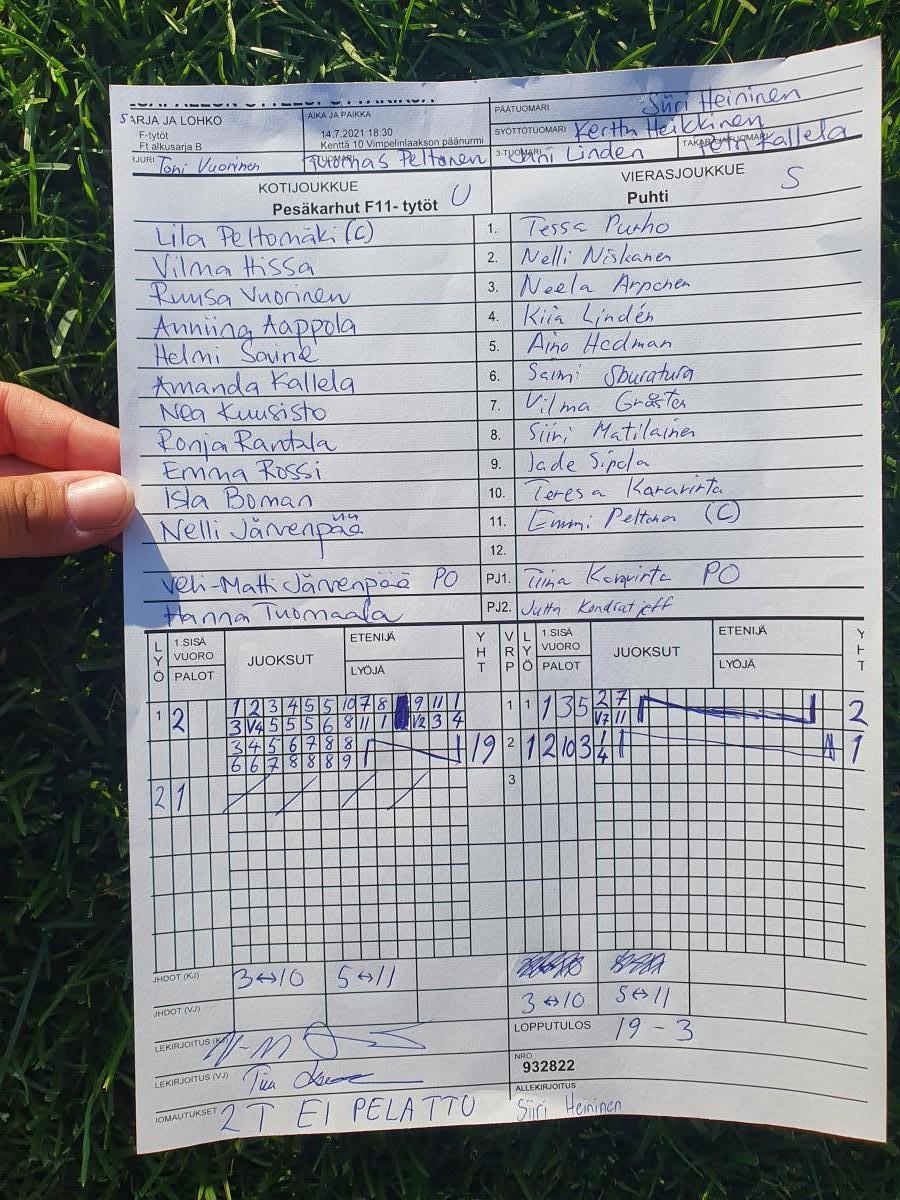 SARJA JA LOHKO
F-tytöt
Ft alkusarja B
AIKA JA PAIKKA
14.7.2021 18:30
Kenttä 10 Vimpelinlaakson päänurmi
PÄÄTUOMARI Siiri Heininen
SYÖTTÖTUOMARI Kerttu Heikkinen
Toni Vuorinen
Tuomas Peltonen
3-TUOMARI Linden
Kallela
KOTIJOUKKUE U
Pesäkarhut F11- tytöt
VIERASJOUKKUE S
Puhti
Lila Peltomäki (C) 1. Tessa Purho
Vilma Hissa 2. Nelli Niskanen
Ruusa Vuorinen 3. Neela Arponen
Anniina Aappola 4. Kiia Lindén
Helmi Savine 5. Aino Hedman
Amanda Kallela 6. Saimi Sburatura
Nea Kuusisto 7. Vilma Gröster
Ronja Rantala 8. Siiri Matilainen
Emma Rossi 9. Jade Sipola
Isla Boman 10. Teresa Karavirta
Nelli Järvenpää 11. Emmi Peltonen (C)
12.
Veli-Matti Järvenpää PO PJ1. Tiina Koravirta PO
Hanna Tuomaala PJ2. Jutta Kondratjeff
LYÖ 1.SISÄ VUORO PALOT JUOKSUT ETENIJÄ LYÖJÄ YHT VRP LYÖ 1.SISÄ VUORO PALOT JUOKSUT ETENIJÄ LYÖJÄ YHT
1 2 1 2 3 4 5 5 10 7 8 9 11 1 1 1 1 3 5 2 7 2
3 V4 5 5 5 6 8 11 1 V2 3 4 V7 11
3 4 5 6 7 8 8 19 2 1 2 10 3 1 1
6 6 7 8 8 8 9 4
2 1 3
IHDOT (KJ) 3↔10 5↔11
IHDOT (VJ) 3↔10 5↔11
LEKIRJOITUS (KJ)
LOPPUTULOS 19 - 3
LEKIRJOITUS (VJ)
NRO
932822
ALLEKIRJOITUS
IOMAUTUKSET 2T EI PELATTU Siiri Heininen